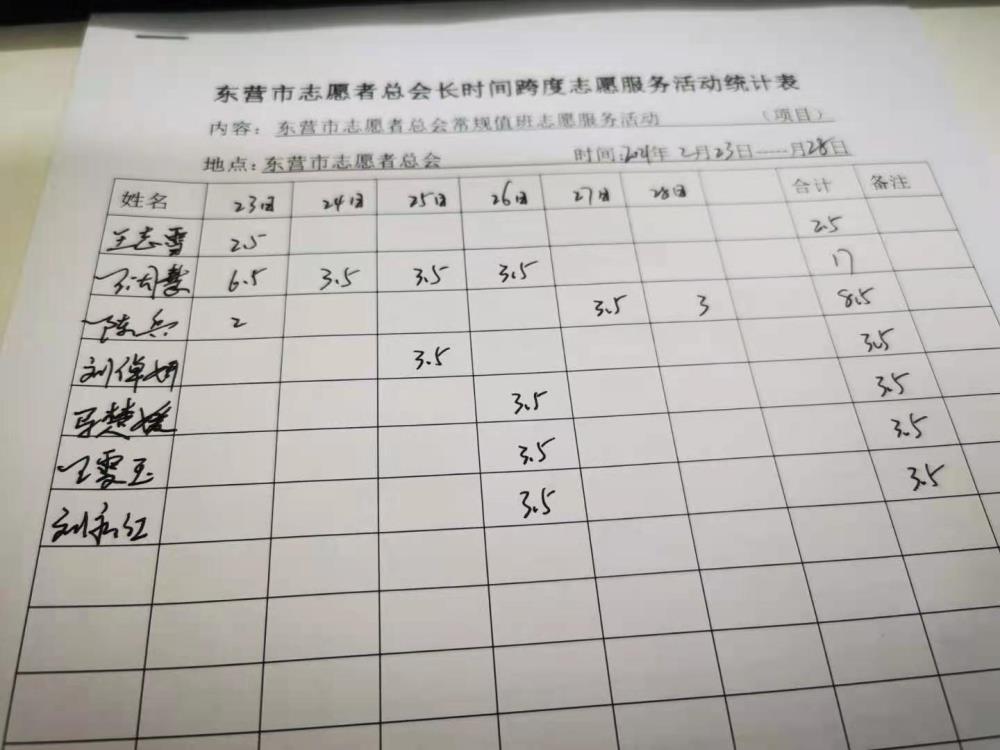 东营市志愿者总会长时间跨度志愿服务活动统计表
内容：东营市志愿者总会常规值班志愿服务活动 （项目）
地点：东营市志愿者总会 时间：2021年2月23日——月28日
姓名 23日 24日 25日 26日 27日 28日 合计 备注
王志雪 2.5 2.5
6.5 3.5 3.5 3.5 17
陈兵 2 3.5 3 8.5
刘倬妍 3.5 3.5
马楚媛 3.5 3.5
王雪玉 3.5 3.5
刘红 3.5 3.5